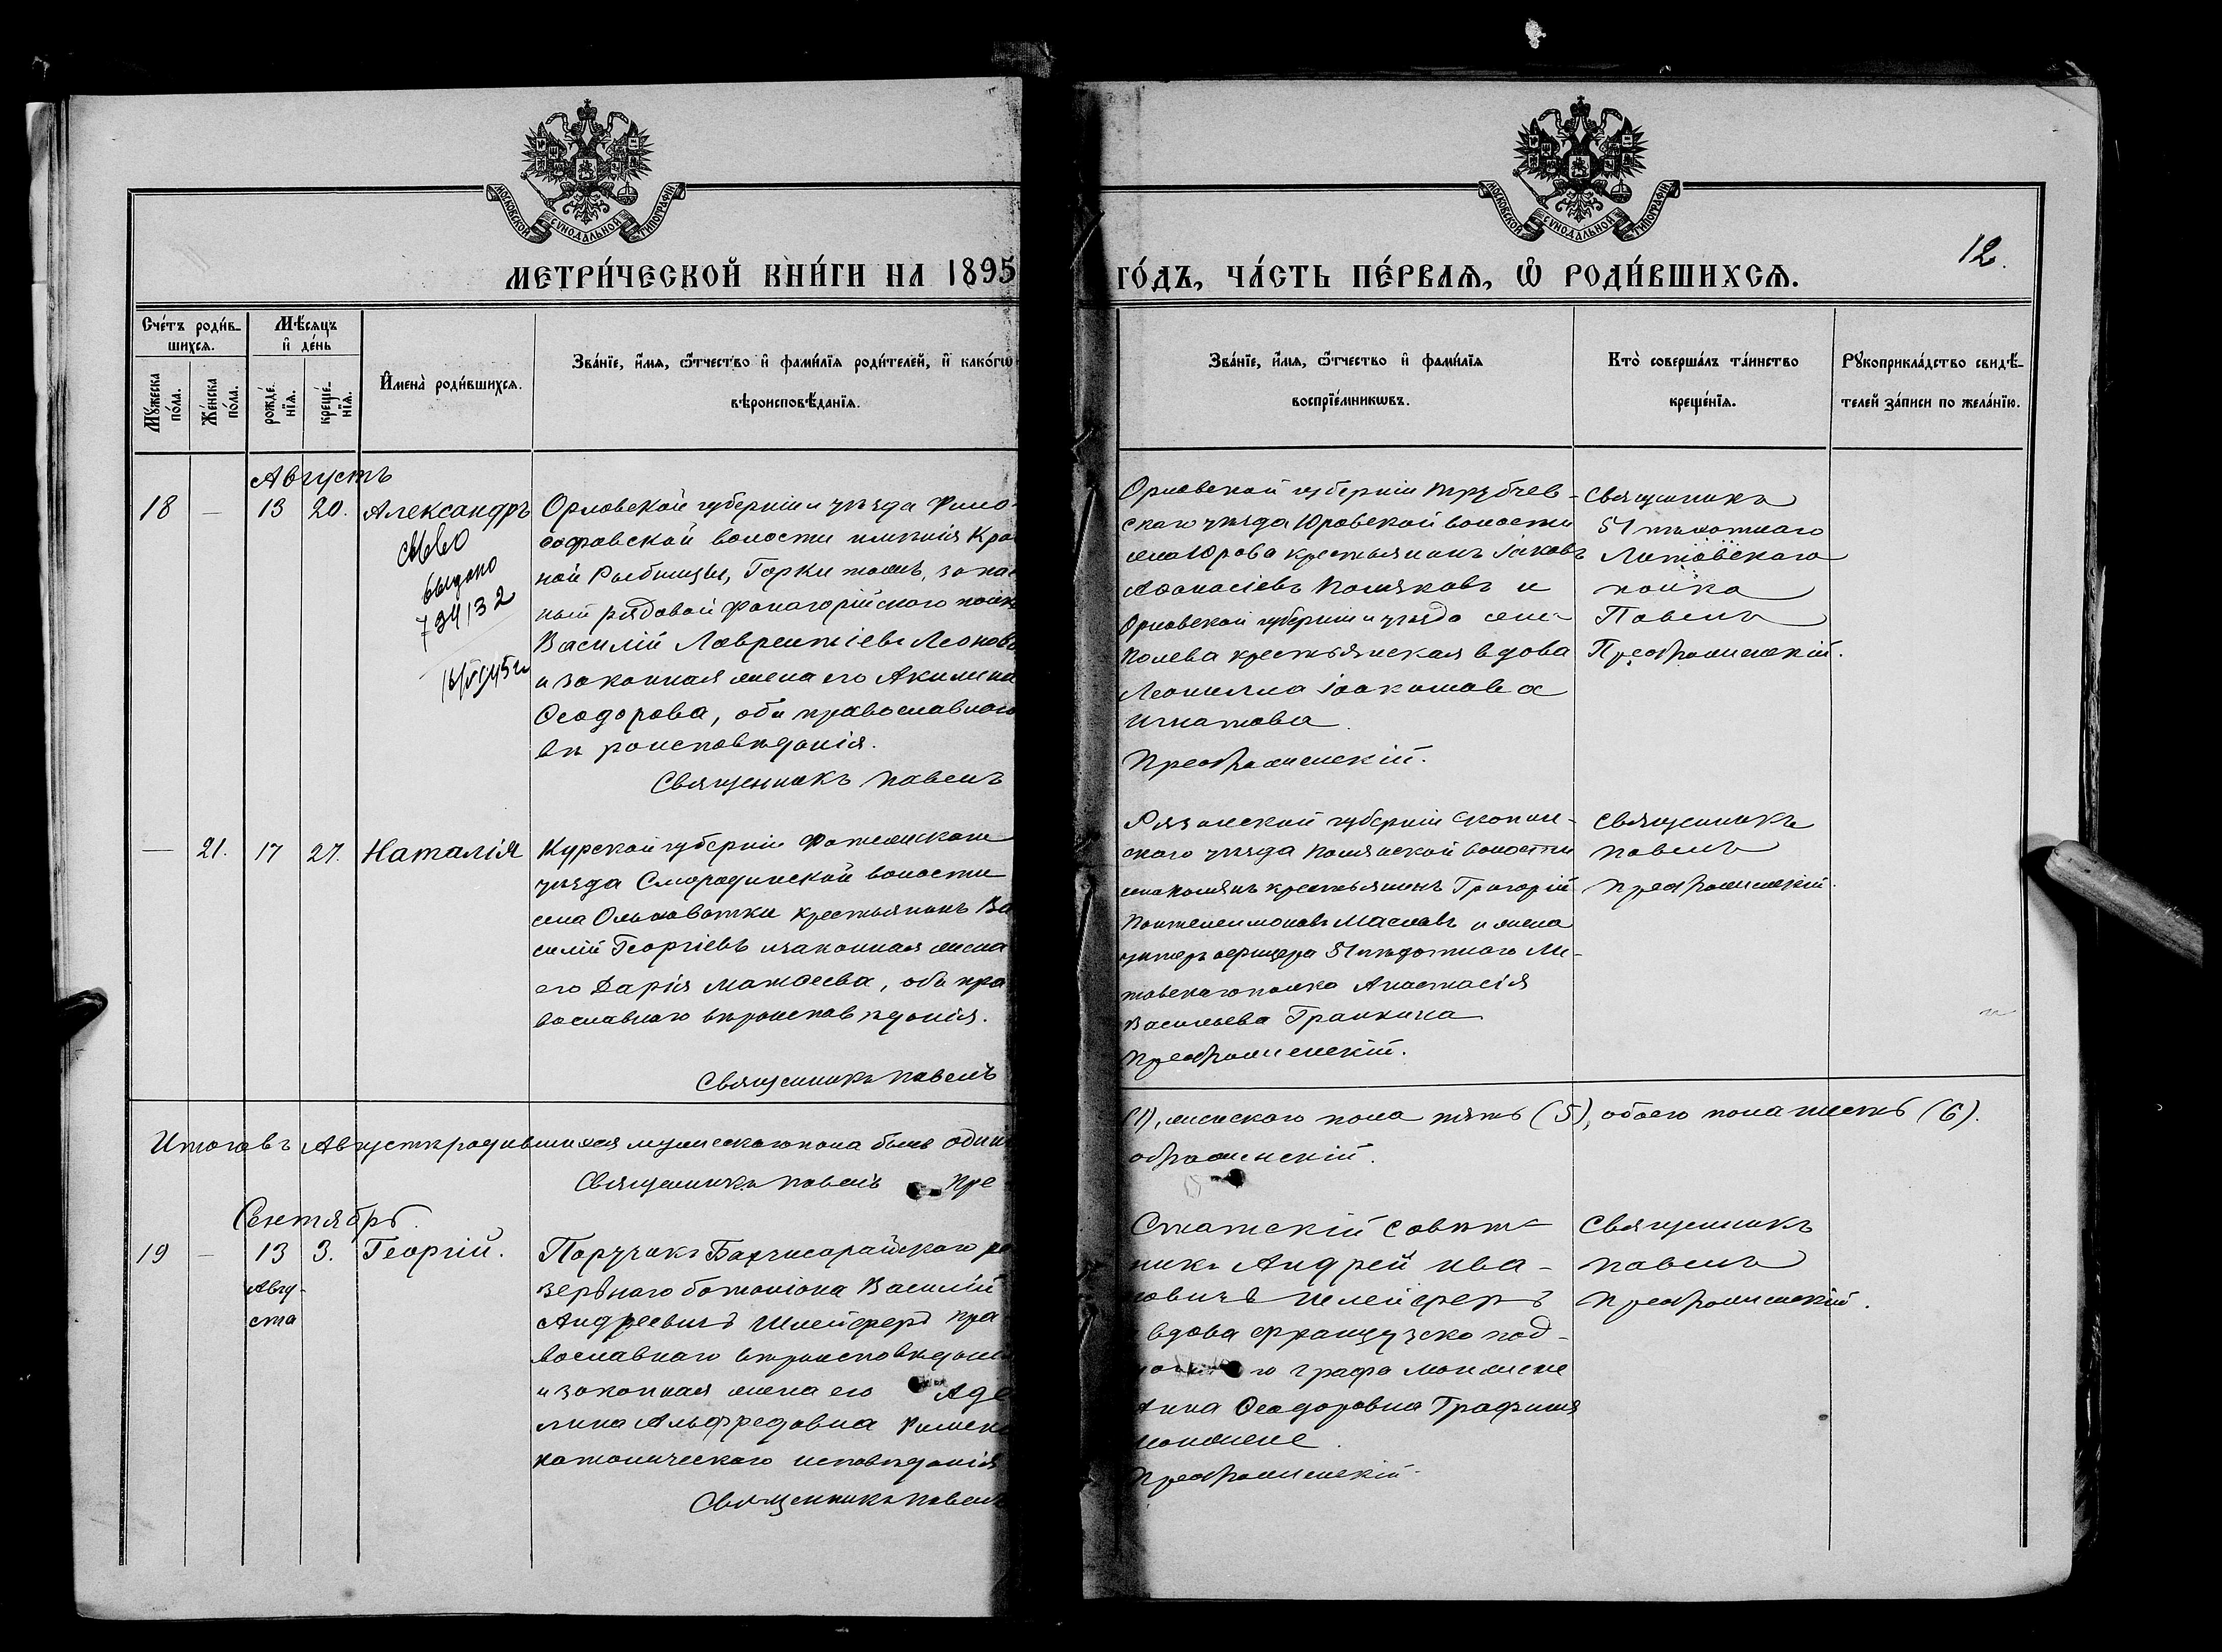 МОСКОВСКОЙ СѴНОДАЛЬНОЙ ТИПОГРАФІИ
МОСКОВСКОЙ СѴНОДАЛЬНОЙ ТИПОГРАФІИ
12.
МЕТРИ́ЧЕСКОЙ КНИ́ГИ НА 1895
ГО́ДЪ, ЧА́СТЬ ПЕ́РВАѦ, Ѡ РОДИ́ВШИХСѦ.
Сче́тъ роди́в-
шихсѧ.
Мѣ́сѧцъ
и де́нь
Мꙋ́жеска по́ла.
Же́нска по́ла.
рожде́нїѧ.
креще́нїѧ.
Имена̀ роди́вшихсѧ.
Зва́нїе, и́мѧ, ѻ́тчество и фами́лїѧ роди́телей, и како́гѡ
вѣроисповѣ́данїѧ.
Зва́нїе, и́мѧ, ѻ́тчество и фами́лїѧ
воспрїе́мникѡвъ.
Кто̀ соверша́лъ та́инство
креще́нїѧ.
Рꙋкоприкла́дство свидѣ́-
телей за́писи по жела́нїю.
Августъ
18 — 13 20. Александръ
выдано
Орловской губерніи и уѣзда Фило-
софовской волости имѣнія Кра
ной Рыбницы, Горки тожъ, запас
ный рядовой Фанагорійского полка
Василій Лаврентіевъ Леоновъ
и законная жена его Акилина
Ѳеодорова, оба православнаго
вѣроисповѣданія.
Священникъ Павелъ
Орловской губерніи Трубчев-
скаго уѣзда Юровской волости
села Юрова крестьянинъ Іаковъ
Аѳанасіевъ Поляковъ и
Орловской губерніи и уѣзда села
Полева крестьянская вдова
Леонилла Іоакимова
Игнатова.
Преображенскій.
Священникъ
51 пѣхотнаго
Литовскаго
полка
Павелъ
Преображенскій.
— 21. 17 27. Наталія
Курской губерніи Фатежскаго
уѣзда Смородинской волости
села Ольховатки крестьянинъ Ва
силій Георгіевъ и законная жена
его Дарія Матѳеева, оба пра
вославнаго вѣроисповѣданія.
Священникъ Павелъ
Рязанской губерніи Скопин-
скаго уѣзда Полянской волости
села Полянъ крестьянинъ Григорій
Пантелеимоновъ Масловъ и жена
унтеръ офицера 51 пѣхотнаго Ли-
товскаго полка Анастасія
Васильева Гранкина
Преображенскій.
Священникъ
Павелъ
Преображенскій.
Итого въ Августѣ родившихся мужескаго пола былъ одинъ
(1), женскаго пола пять (5), обоего пола шесть (6).
Священникъ Павелъ Пре
ображенскій.
Сентябрь.
19 — 13 3. Георгій.
Авгу-
ста
Поручикъ Бахчисарайскаго ре
зервнаго баталіона Василій
Андреевичъ Шлейферъ пра
вославнаго вѣроисповѣданія
и законная жена его Аде
лина Альфредовна Римско
католическаго исповѣданія
Священникъ Павелъ
Статскій Совѣт-
никъ Андрей Ива-
новичъ Шлейферъ
вдова французско под-
графа Монжене
Анна Ѳеодоровна Графиня
Монжене.
Преображенскій.
Священникъ
Павелъ
Преображенскій.